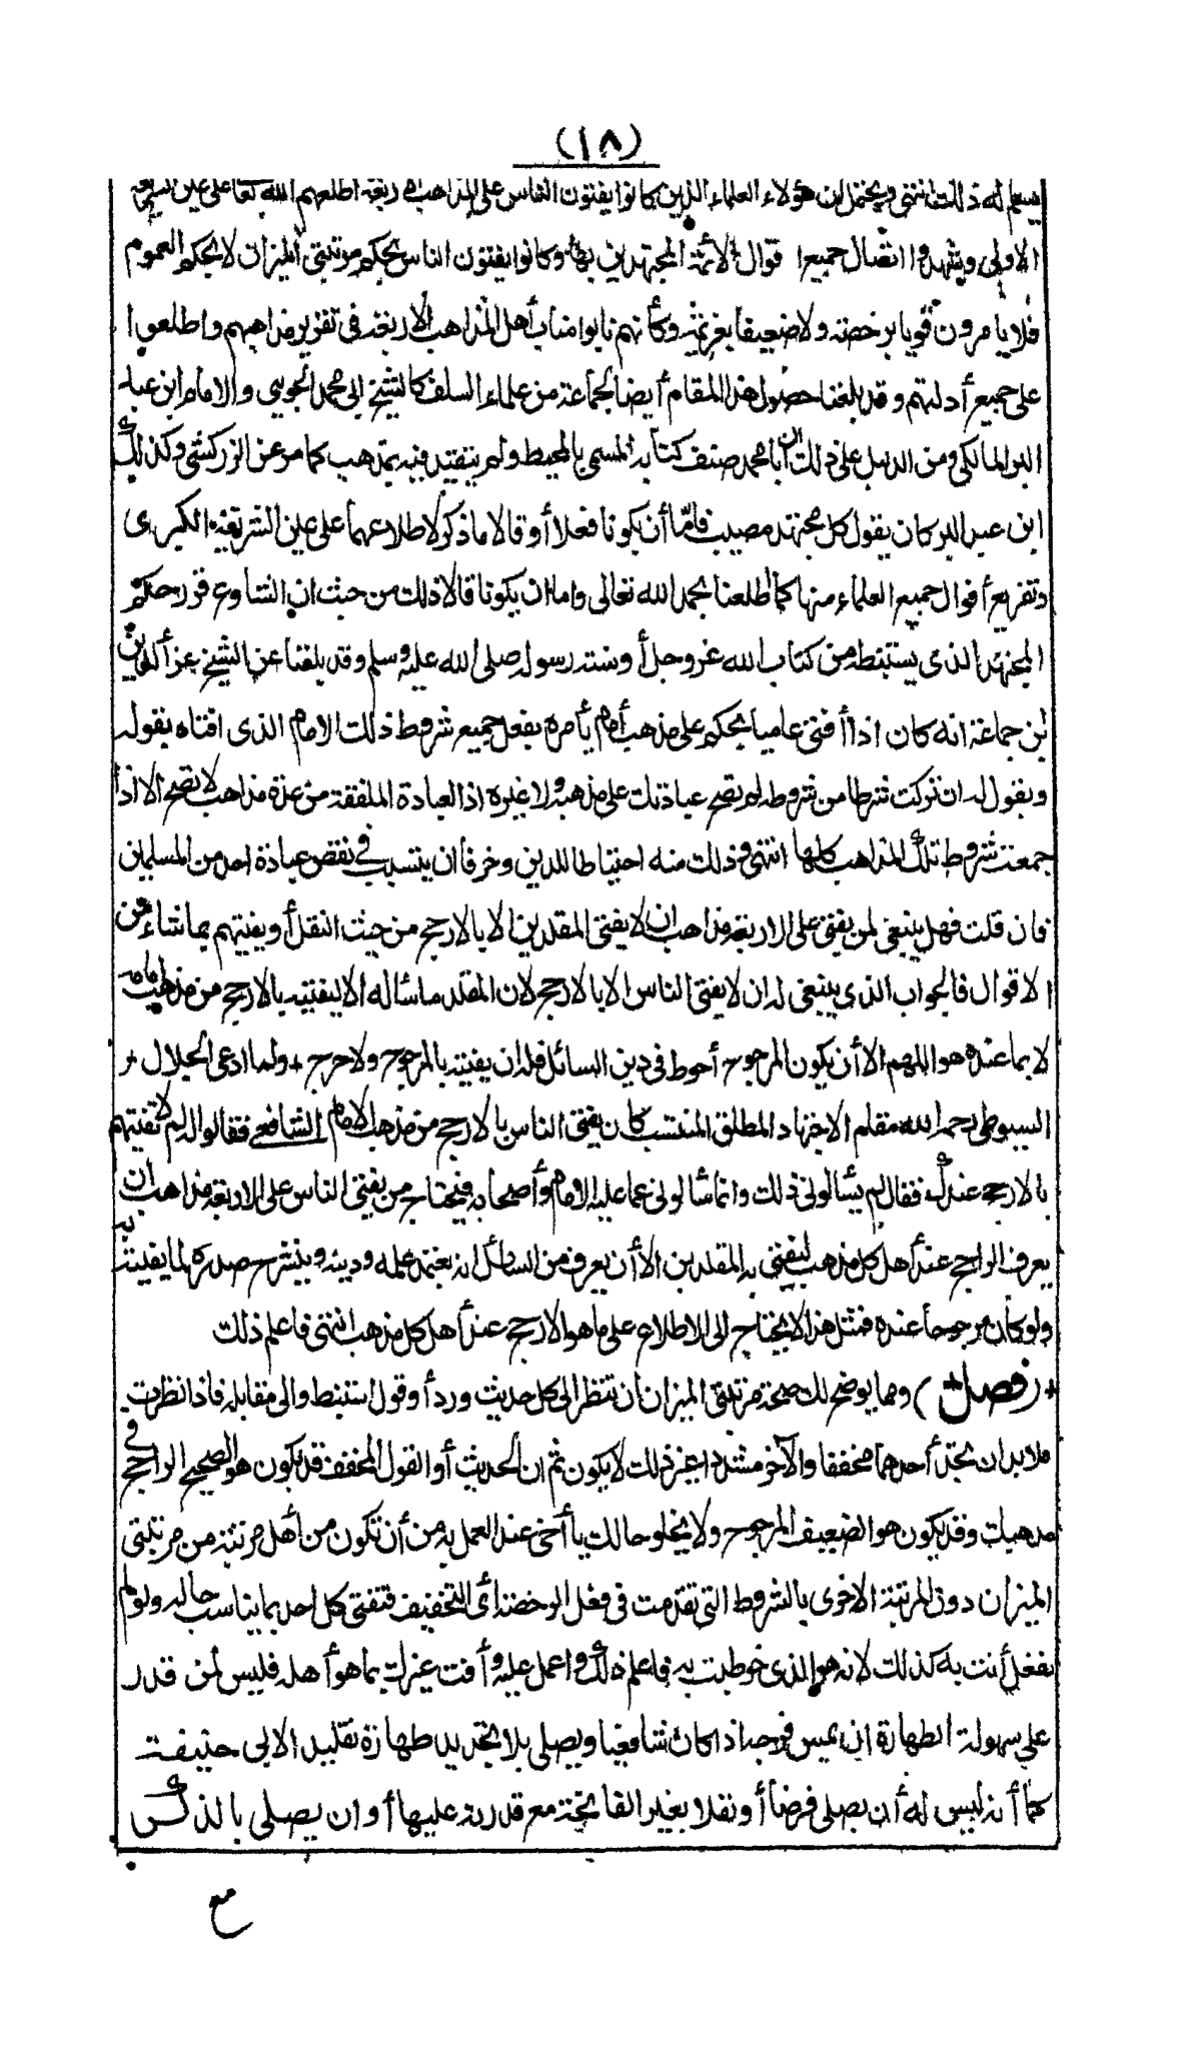 (١٨)
يسلم له ذلك انتهى ويحتمل ان هؤلاء العلماء الذين كانوا يفتون الناس على المذاهب الاربعة اطلعهم الله تعالى على عين الشريعة
الاولى وشهدوا اتصال جميع اقوال الائمة المجتهدين بها وكانوا يفتون الناس بحكم مرتبتي الميزان لا بحكم العموم
فلا يامرون قويا برخصة ولا ضعيفا بعزيمة وكأنهم نابوا مناب أهل المذاهب الاربعة فى تقرير مذاهبهم واطلعوا
على جميع أدلتهم وقد بلغنا حصول هذا المقام أيضا لجماعة من علماء السلف كالشيخ ابى محمد الجويني والامام ابن عبد
البر المالكى ومن الدليل على ذلك ان أبا محمد صنف كتابه المسمى بالمحيط ولم يتقيد فيه بمذهب كما مر عن الزركشى وكذلك
ابن عبد البر كان يقول كل مجتهد مصيب فامّا أن يكونا فعلا أو قالا ما ذكر لاطلاعهما على عين الشريعة الكبرى
وتفريع أقوال جميع العلماء منها كما اطلعنا بحمد الله تعالى واما ان يكونا قالا ذلك من حيث ان الشارع قرر حكم
المجتهد الذى يستنبطه من كتاب الله عز وجل أو سنة رسوله صلى الله عليه وسلم وقد بلغنا عن الشيخ عز الدين
بن جماعة انه كان اذا أفتى عاميا بحكم على مذهب أمام يأمره بفعل جميع شروط ذلك الامام الذى افتاه بقوله
ويقول له ان تركت شرطا من شروطه لم تصح عبادتك على مذهبه ولا غيره اذ العبادة الملفقة من عدة مذاهب لا تصح الا اذا
جمعت شروط تلك المذاهب كلها انتهى وذلك منه احتياطا للدين وخوفا ان يتسبب فى نقص عبادة احد من المسلمين
فان قلت فهل ينبغى لمن يفتى على الاربعة مذاهب ان لا يفتى المقلدين الا بالارجح من حيث النقل أو يفتيهم بما شاء من
الاقوال فالجواب الذى ينبغى له ان لا يفتى الناس الا بالارجح لان المقلد ما سأله الا ليفتيه بالارجح من مذهب امامه
لا بما عنده هو اللهم الا أن يكون المرجوح أحوط فى دين السائل فله ان يفتيه بالمرجوح ولا حرج + ولما ادعى الجلال +
السيوطى رحمه الله مقام الاجتهاد المطلق المنتسب كان يفتى الناس بالارجح من مذهب الامام الشافعى فقالوا له لم لا تفتيهم
بالارجح عندك فقال لم يسألونى ذلك وانما سألونى عما عليه الامام وأصحابه فيحتاج من يفتى الناس على الاربعة مذاهب ان
يعرف الراجح عند أهل كل مذهب ليفتى به المقلدين الا أن يعرف من السائل انه يعتمد علمه ودينه وينشرح صدره لما يفتيه به
ولو كان مرجوحا عنده فمثل هذا لا يحتاج الى الاطلاع على ما هو الارجح عند أهل كل مذهب انتهى فاعلم ذلك
+ (فصل) ومما يوضح لك صحة مرتبتى الميزان أن تنظر الى كل حديث ورد أو قول استنبط والى مقابله فاذا نظرت
فلا بد ان تجد أحدهما مخففا والآخر مشددا غير ذلك لا يكون ثم ان الحديث أو القول المخفف قد يكون هو الصحيح الراجح فى
مذهبك وقد يكون هو الضعيف المرجوح ولا يخلو حالك يا أخى عند العمل به من أن تكون من أهل مرتبة من مرتبتى
الميزان دون المرتبة الاخرى بالشروط التى تقدمت فى فعل الرخصة اى التخفيف فتفتى كل احد بما يناسب حاله ولو لم
تفعل أنت به كذلك لانه هو الذى خوطبت به فاعلم ذلك واعمل عليه وأفت غيرك بما هو أهله فليس لمن قدر
على سهولة الطهارة ان يمس فرجه اذا كان شافعيا ويصلى بلا تجديد طهارة تقليدا لابى حنيفة
كما أنه ليس له أن يصلى فرضا أو نفلا بغير الفاتحة مع قدرته عليها أو ان يصلى بالذكر
مع